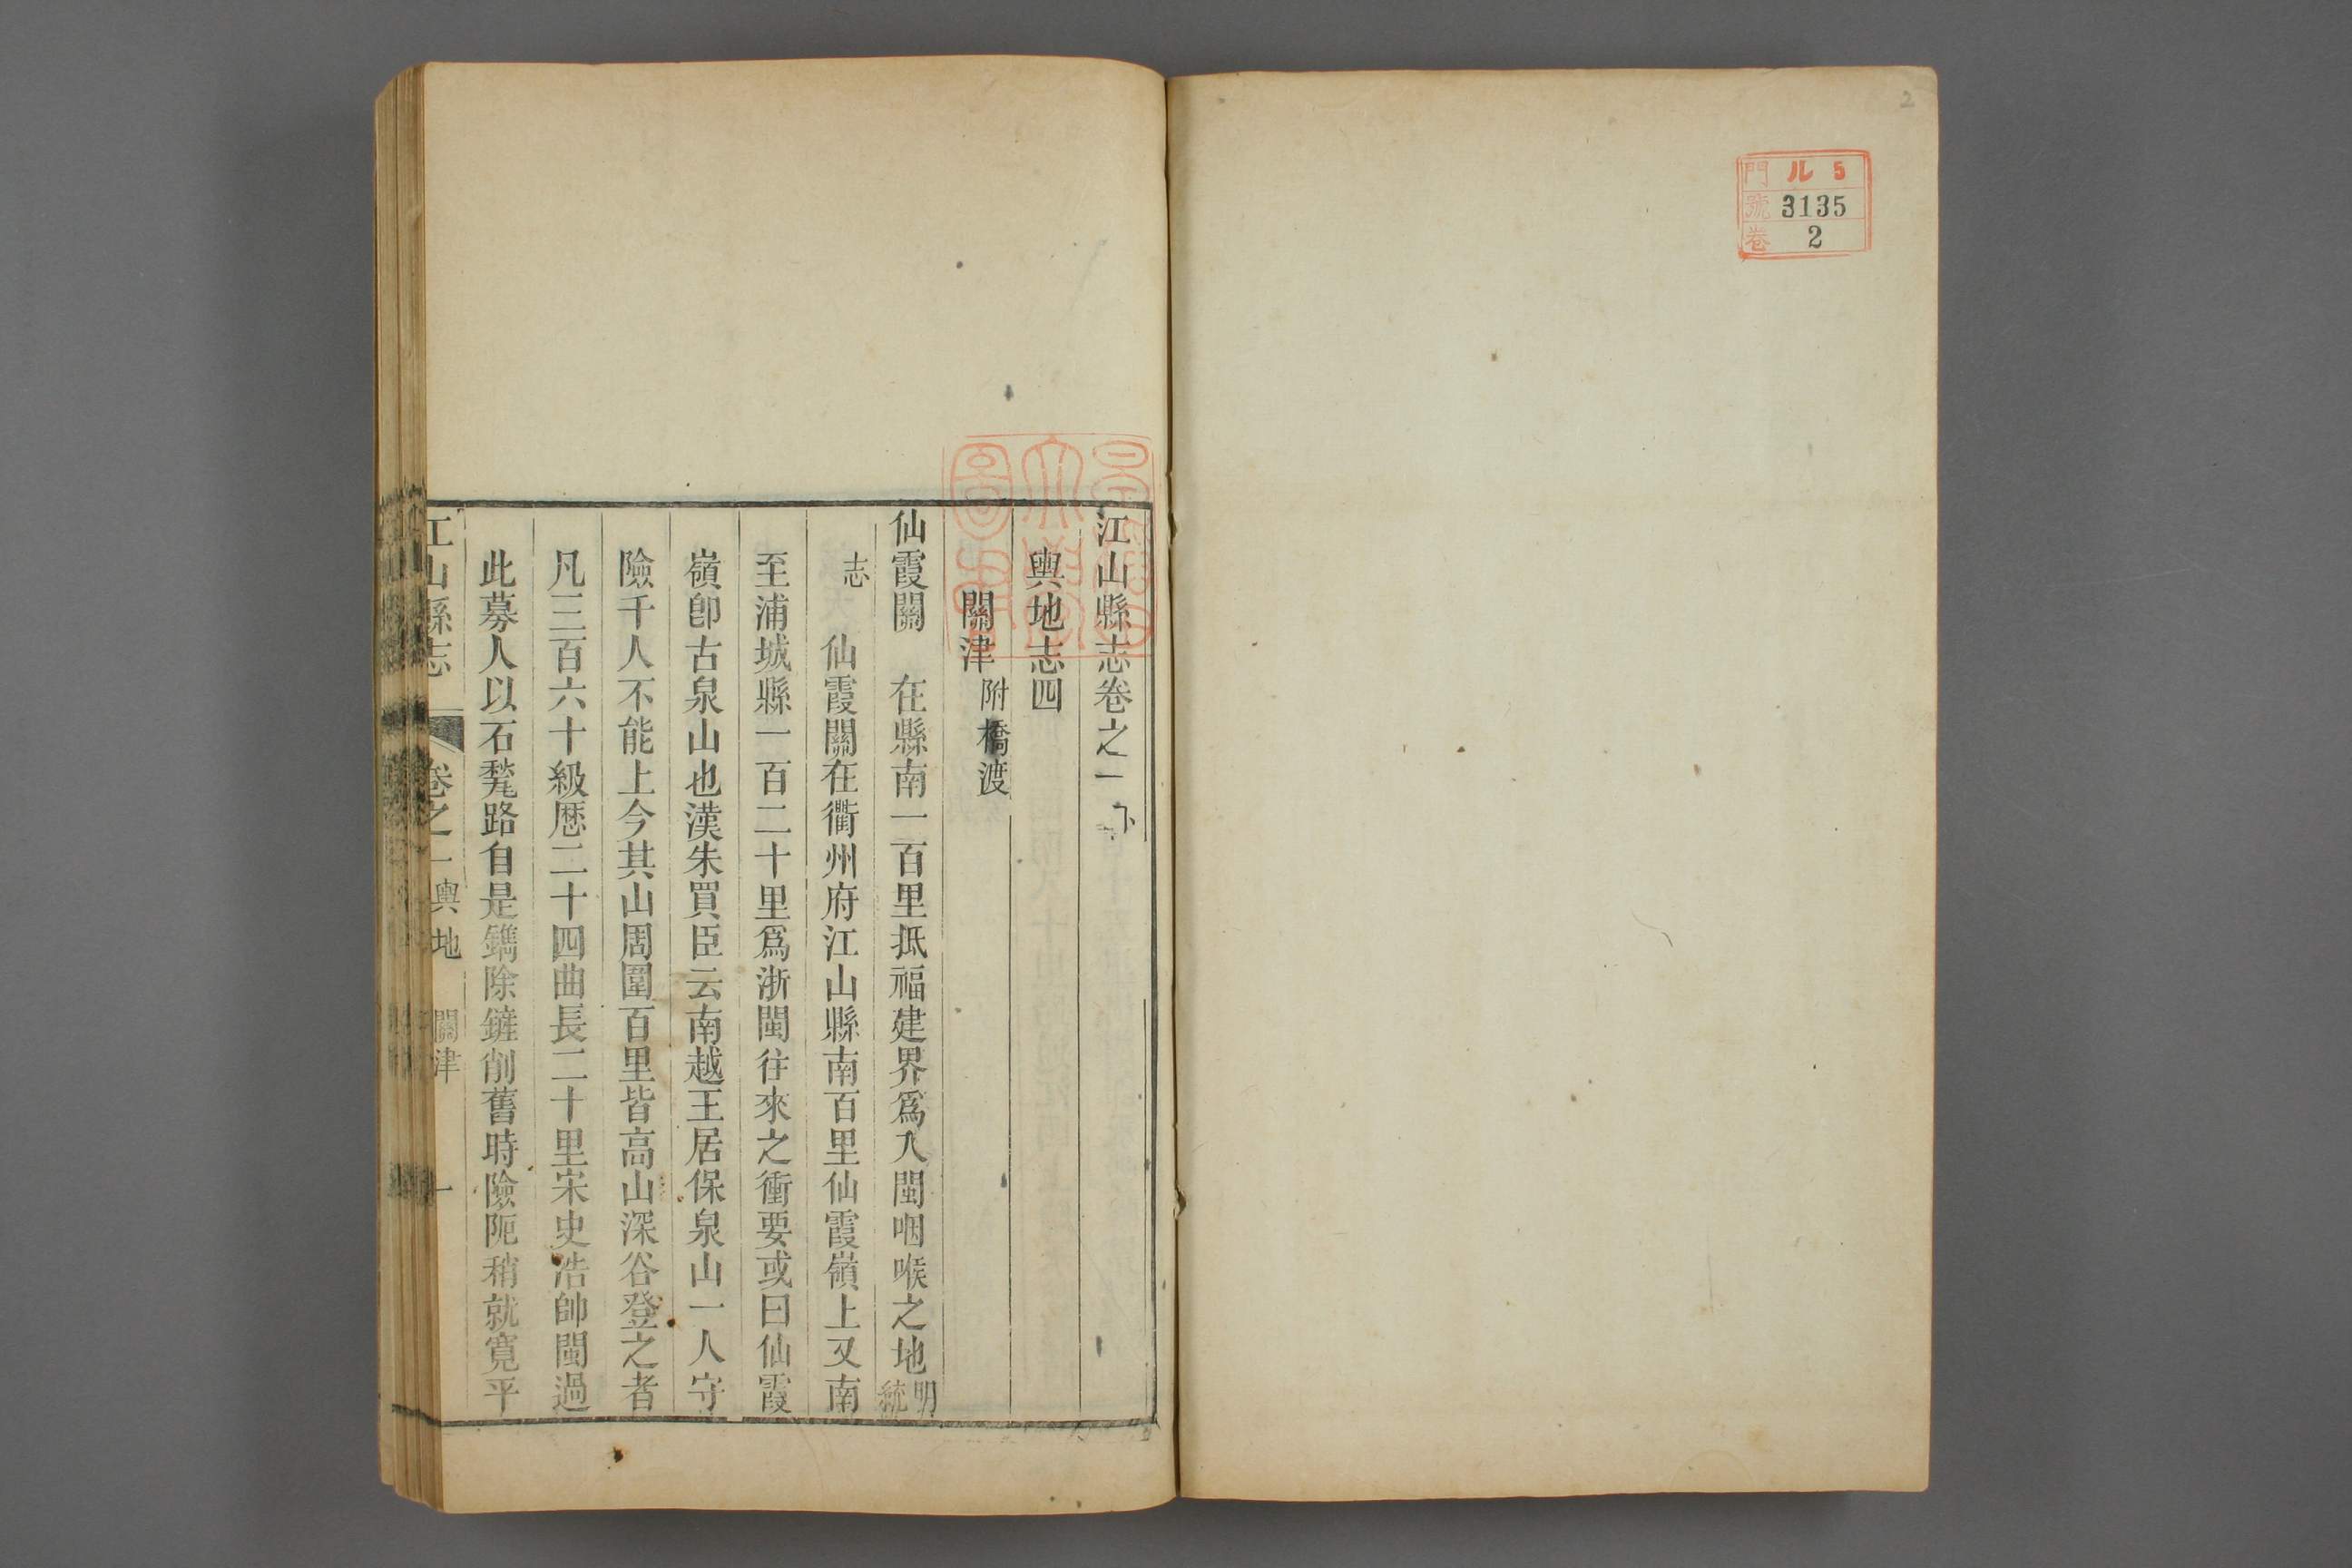 2
門 ル 5
號 3135
卷 2
江山縣志卷之一下
輿地志四
關津 附橋渡
仙霞關 在縣南一百里抵福建界爲入閩咽喉之地 明統
志 仙霞關在衢州府江山縣南百里仙霞嶺上又南
至浦城縣一百二十里爲浙閩往來之衝要或曰仙霞
嶺卽古泉山也漢朱買臣云南越王居保泉山一人守
險千人不能上今其山周圍百里皆高山深谷登之者
凡三百六十級歷二十四曲長二十里宋史浩帥閩過
此募人以石甃路自是鐫除鏟削舊時險阨稍就寬平
江山縣志 卷之一 輿地 關津 一